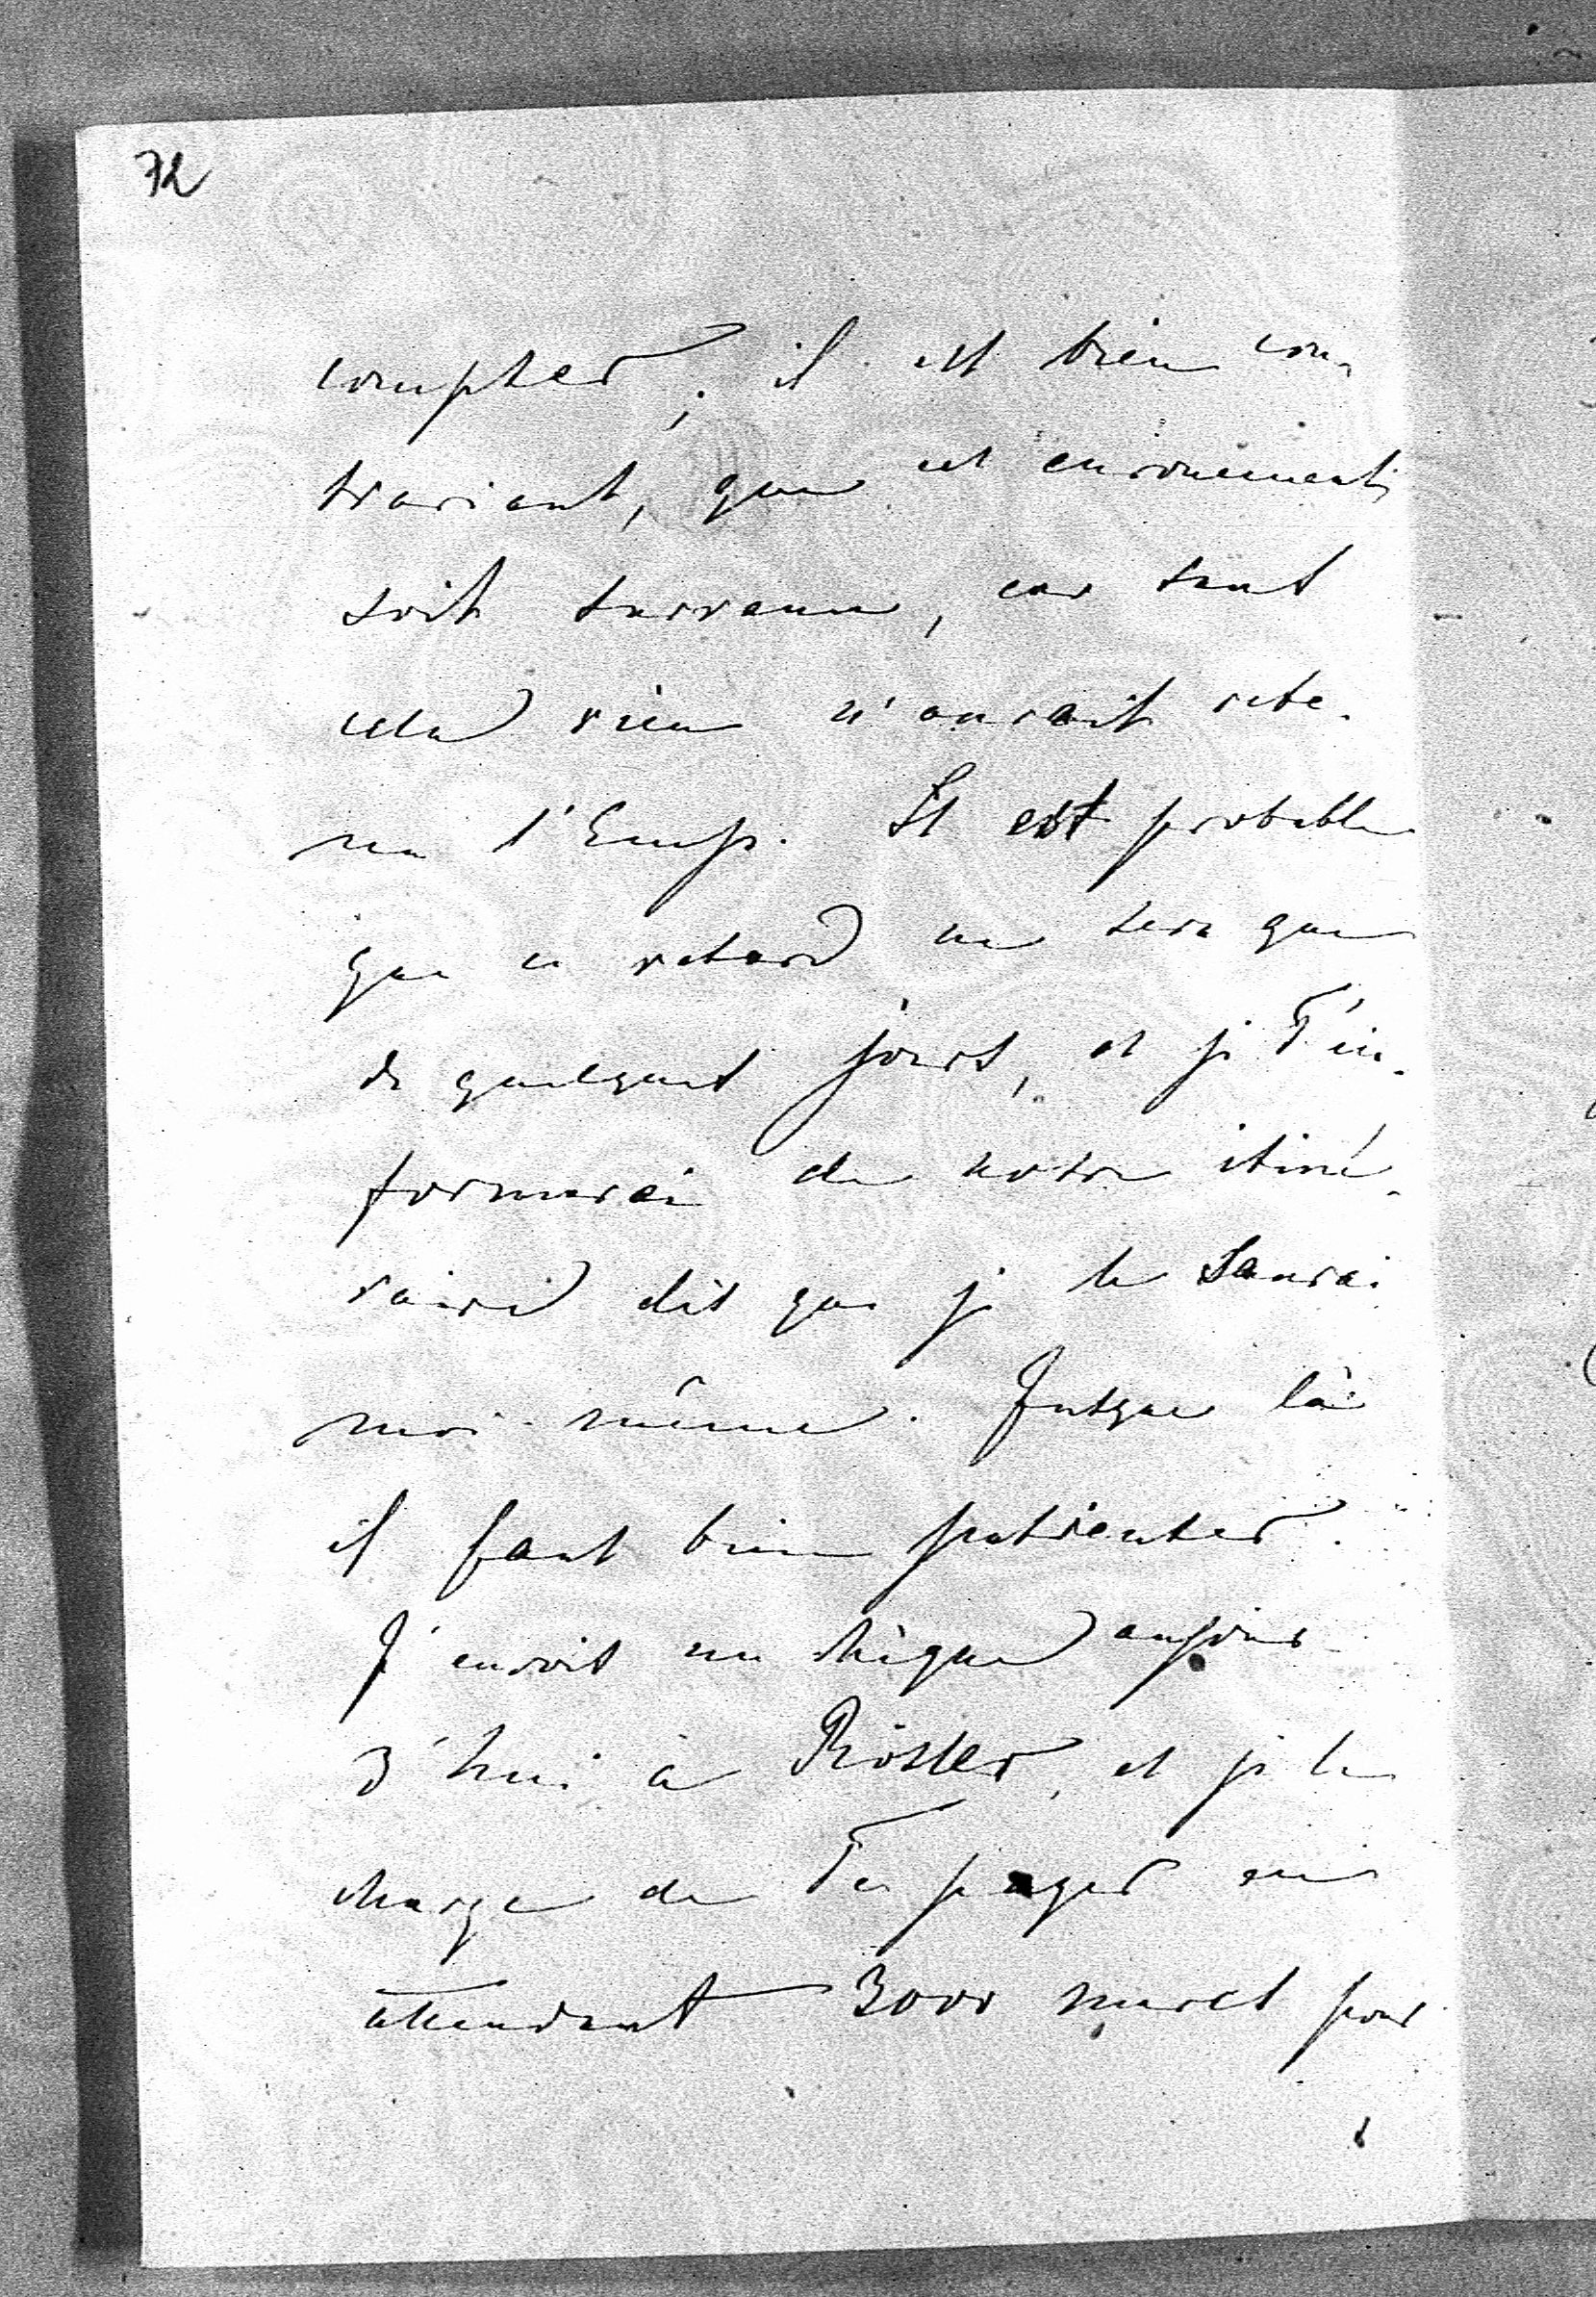 72
compter; il est bien con-
trariant, que cet enrouement
soit survenu, car sans
cela rien n'aurait rete-
nu l'Emp. Il est probable
que ce retard ne sera que
de quelques jours, et je T'in-
formerai de notre itiné-
raire dès que je le saurai
moi-même. Jusque là
il faut bien patienter.
J'envoie un chèque aujour-
d'hui à Rösler, et je le
charge de Te payer en
attendant 3000 marcs pour